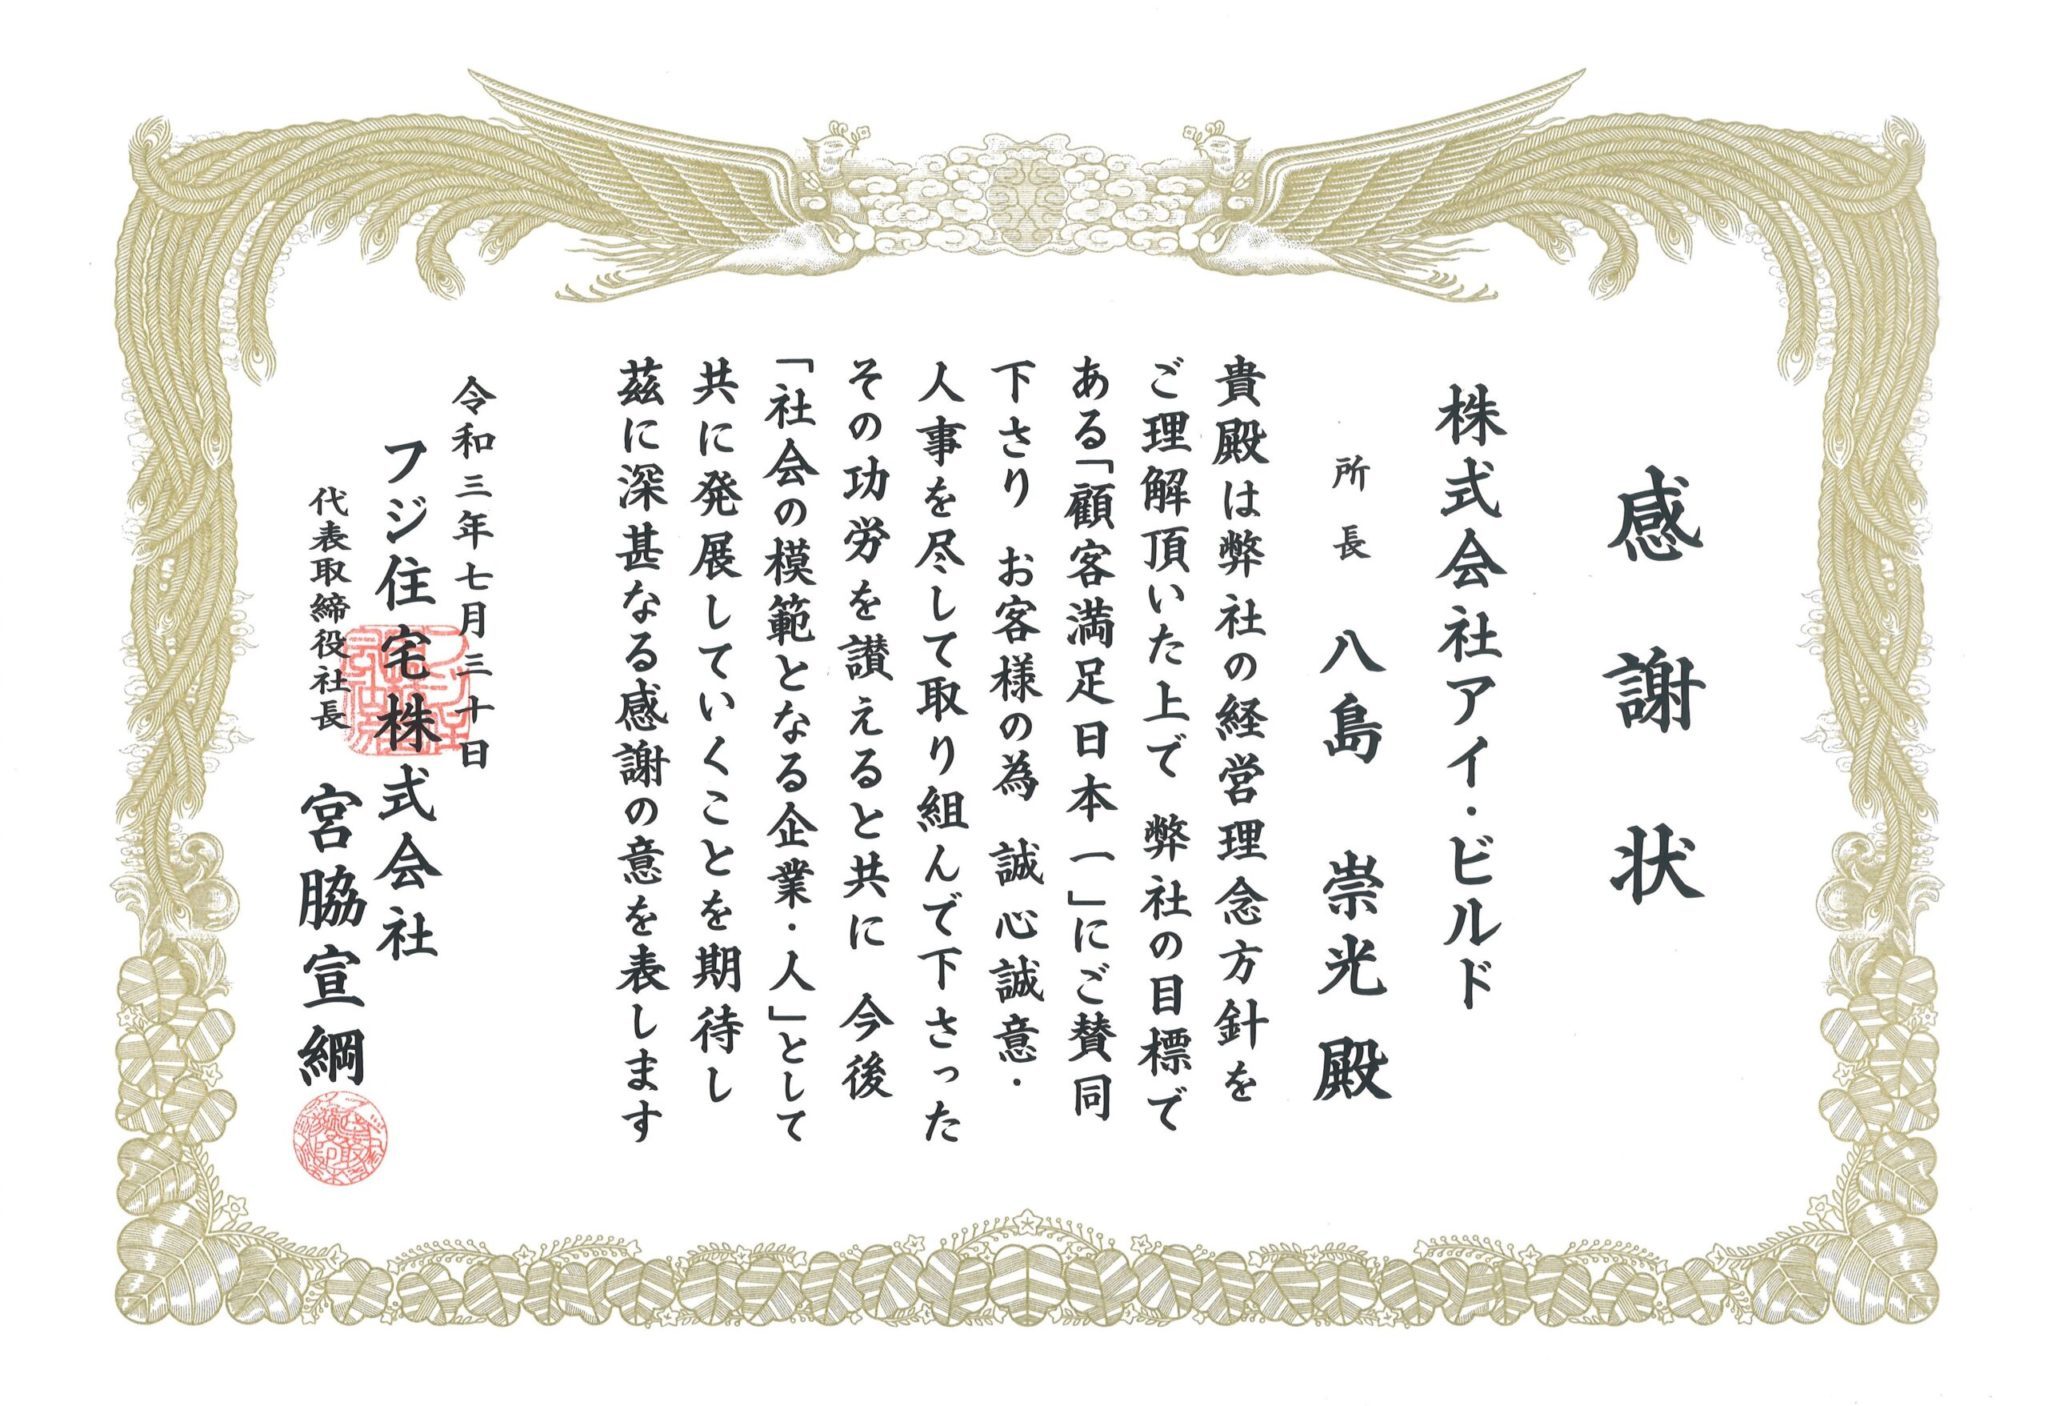 感謝状
株式会社アイ・ビルド
所長 八島 崇光 殿
貴殿は弊社の経営理念方針を
ご理解頂いた上で 弊社の目標で
ある「顧客満足日本一」にご賛同
下さり お客様の為 誠心誠意・
人事を尽して取り組んで下さった
その功労を讃えると共に 今後
「社会の模範となる企業・人」として
共に発展していくことを期待し
茲に深甚なる感謝の意を表します
令和三年七月三十日
フジ住宅株式会社
代表取締役社長 宮脇宣綱